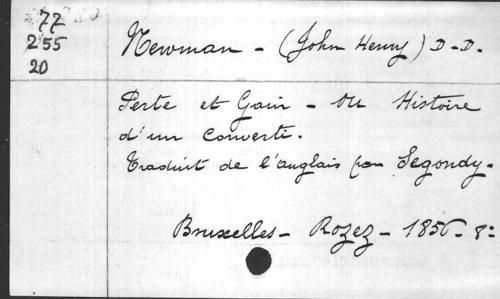 77
255
20
Newman - (John Henry) D-D.
Perte et Gain - ou Histoire
d'un converti.
Traduit de l'anglais par Segondy-
Bruxelles - Rozez - 1856 - 8: